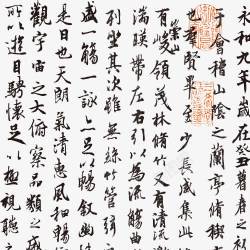 永和九年歲在癸
于會稽山陰之蘭亭脩禊
也羣賢畢至少長咸集此
崇山
有峻領茂林脩竹又有清流
湍暎帶左右引以為流觴
列坐其次雖無絲竹管弦
盛一觴一詠亦足以暢敘幽
是日也天朗氣清惠風和暢
觀宇宙之大俯察品類之盛
所以遊目騁懷足以極視聽之